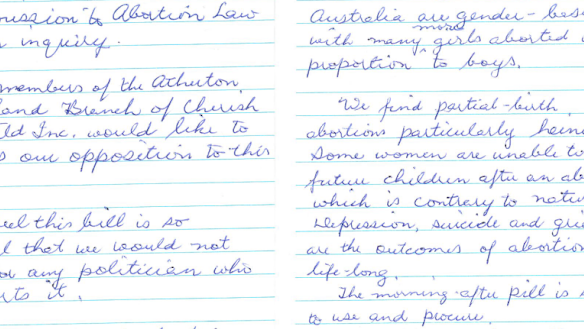 ission to Abortion Law
inquiry.
members of the Atherton
land Branch of Cherish
ld Inc. would like to
s our opposition to this
eel this bill is so
l that we would not
or any politician who
rts it.
Australia are gender-bas
with many more girls aborted
proportion to boys.
We find partial-birth
abortions particularly hein
Some women are unable to
future children after an ab
which is contrary to natu
Depression, suicide and gri
are the outcomes of abortion
life-long.
The morning-after pill is s
to use and procure.